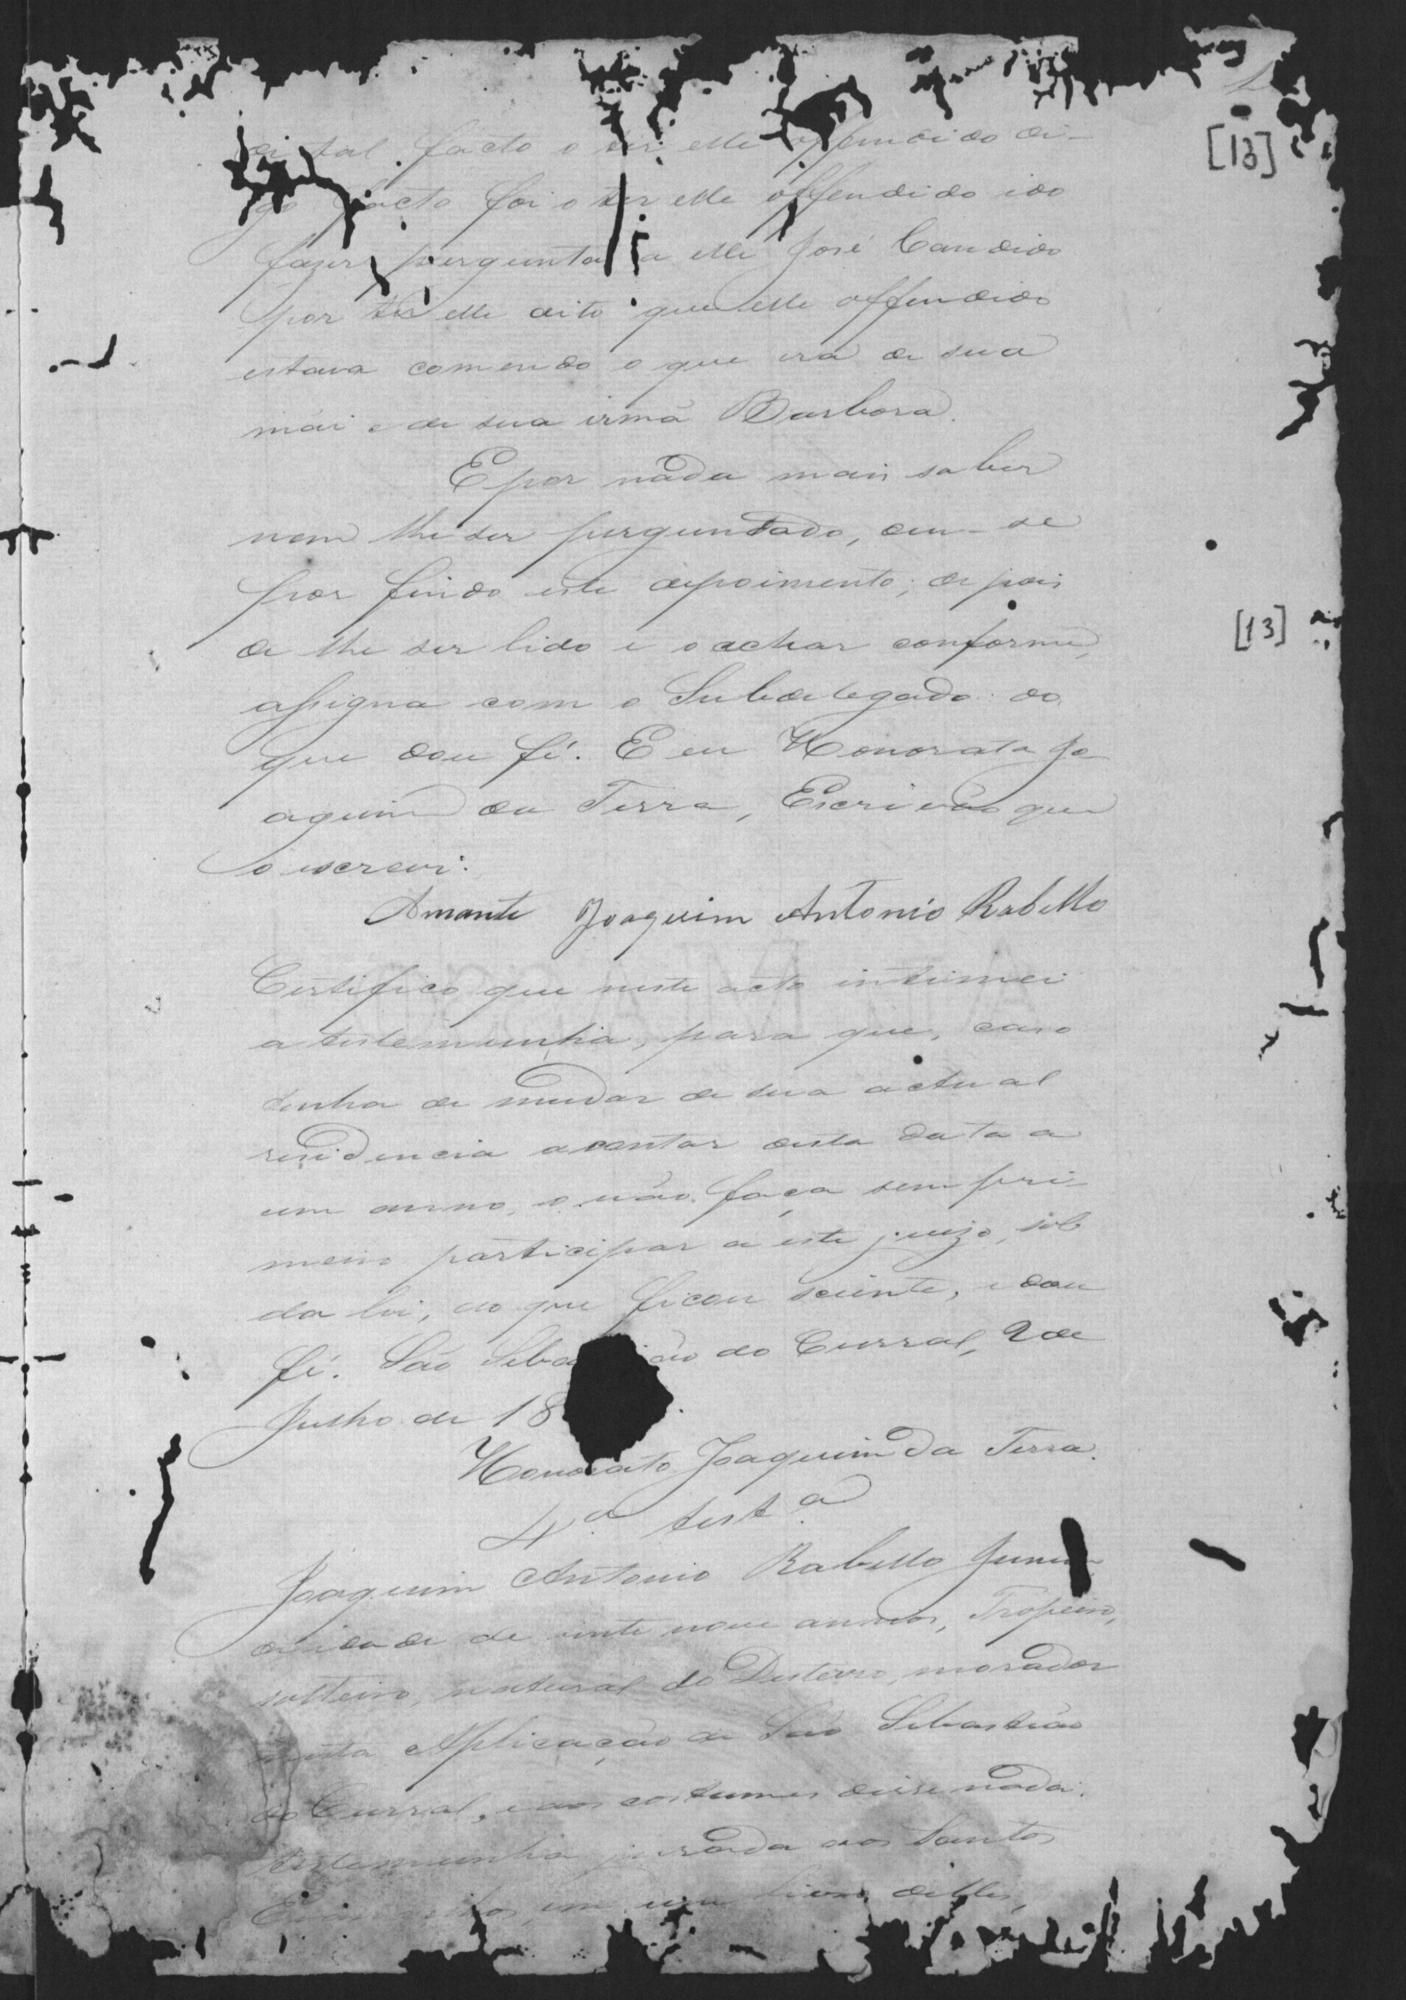 [13]
de tal facto o ser elle offendido di-
go facto foi o ter elle offendido ido
fazer pergunta a elle José Candido
por ter elle dito que elle offendido
estava comendo o que era de sua
mãi e de sua irmã Barbora.
E por nada mais saber
nem lhe ser perguntado, deu-se
por findo este depoimento; depois
de lhe ser lido e o achar conforme,
assigna com o Subdelegado do
que dou fé. E eu Honorato Jo
aquim da Terra, Escrivão que
o escrevi.
[13]
Amante Joaquim Antonio Rabello
Certifico que neste acto intimei
a testemunha, para que, caso
tenha de mudar de sua actual
residencia a contar desta data a
um anno, o não faça sem pri-
meiro participar a este juizo, sob
da lei, do que ficou sciente, e dou
fé. São Seba ão do Curral, 2 de
Julho de 18
Honorato Joaquim da Terra.
4.ª test.ª
Joaquim Antonio Rabello Junior
de idade de vinte nove annos, Tropeiro,
solteiro, natural do Desterro, morador
nesta Aplicação de São Sebastião
do Curral, e aos costumes disse nada.
Testemunha jurada aos Santos
em um livro delles,